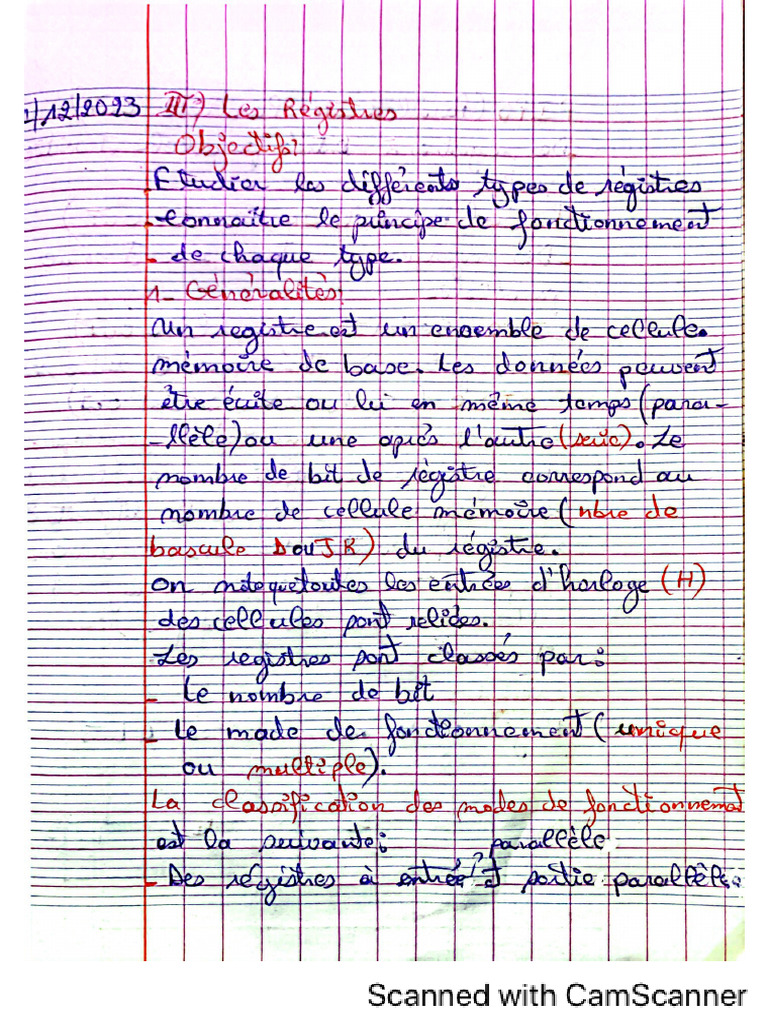 1/12/2023 III) Les Régistres
Objectifs:
Etudier les différents types de régistres
-connaître le principe de fonctionnement
- de chaque type.
1- Généralités:
Un registre est un ensemble de cellule.
mémoire de base. Les données peuvent
être écrite ou lu en même temps (para-
-llèle) ou une après l'autre (série). Le
nombre de bit de régistre correspond au
nombre de cellule mémoire (nbre de
bascule D ou JK) du régistre.
On note que toutes les entrées d'horloge (H)
des cellules sont reliées.
Les registres sont classés par:
- Le nombre de bit
- Le mode de fonctionnement (unique
ou multiple).
La classification des modes de fonctionnement
est la suivante: parallèle
- Des régistres à entrée et sortie parallèle.
Scanned with CamScanner